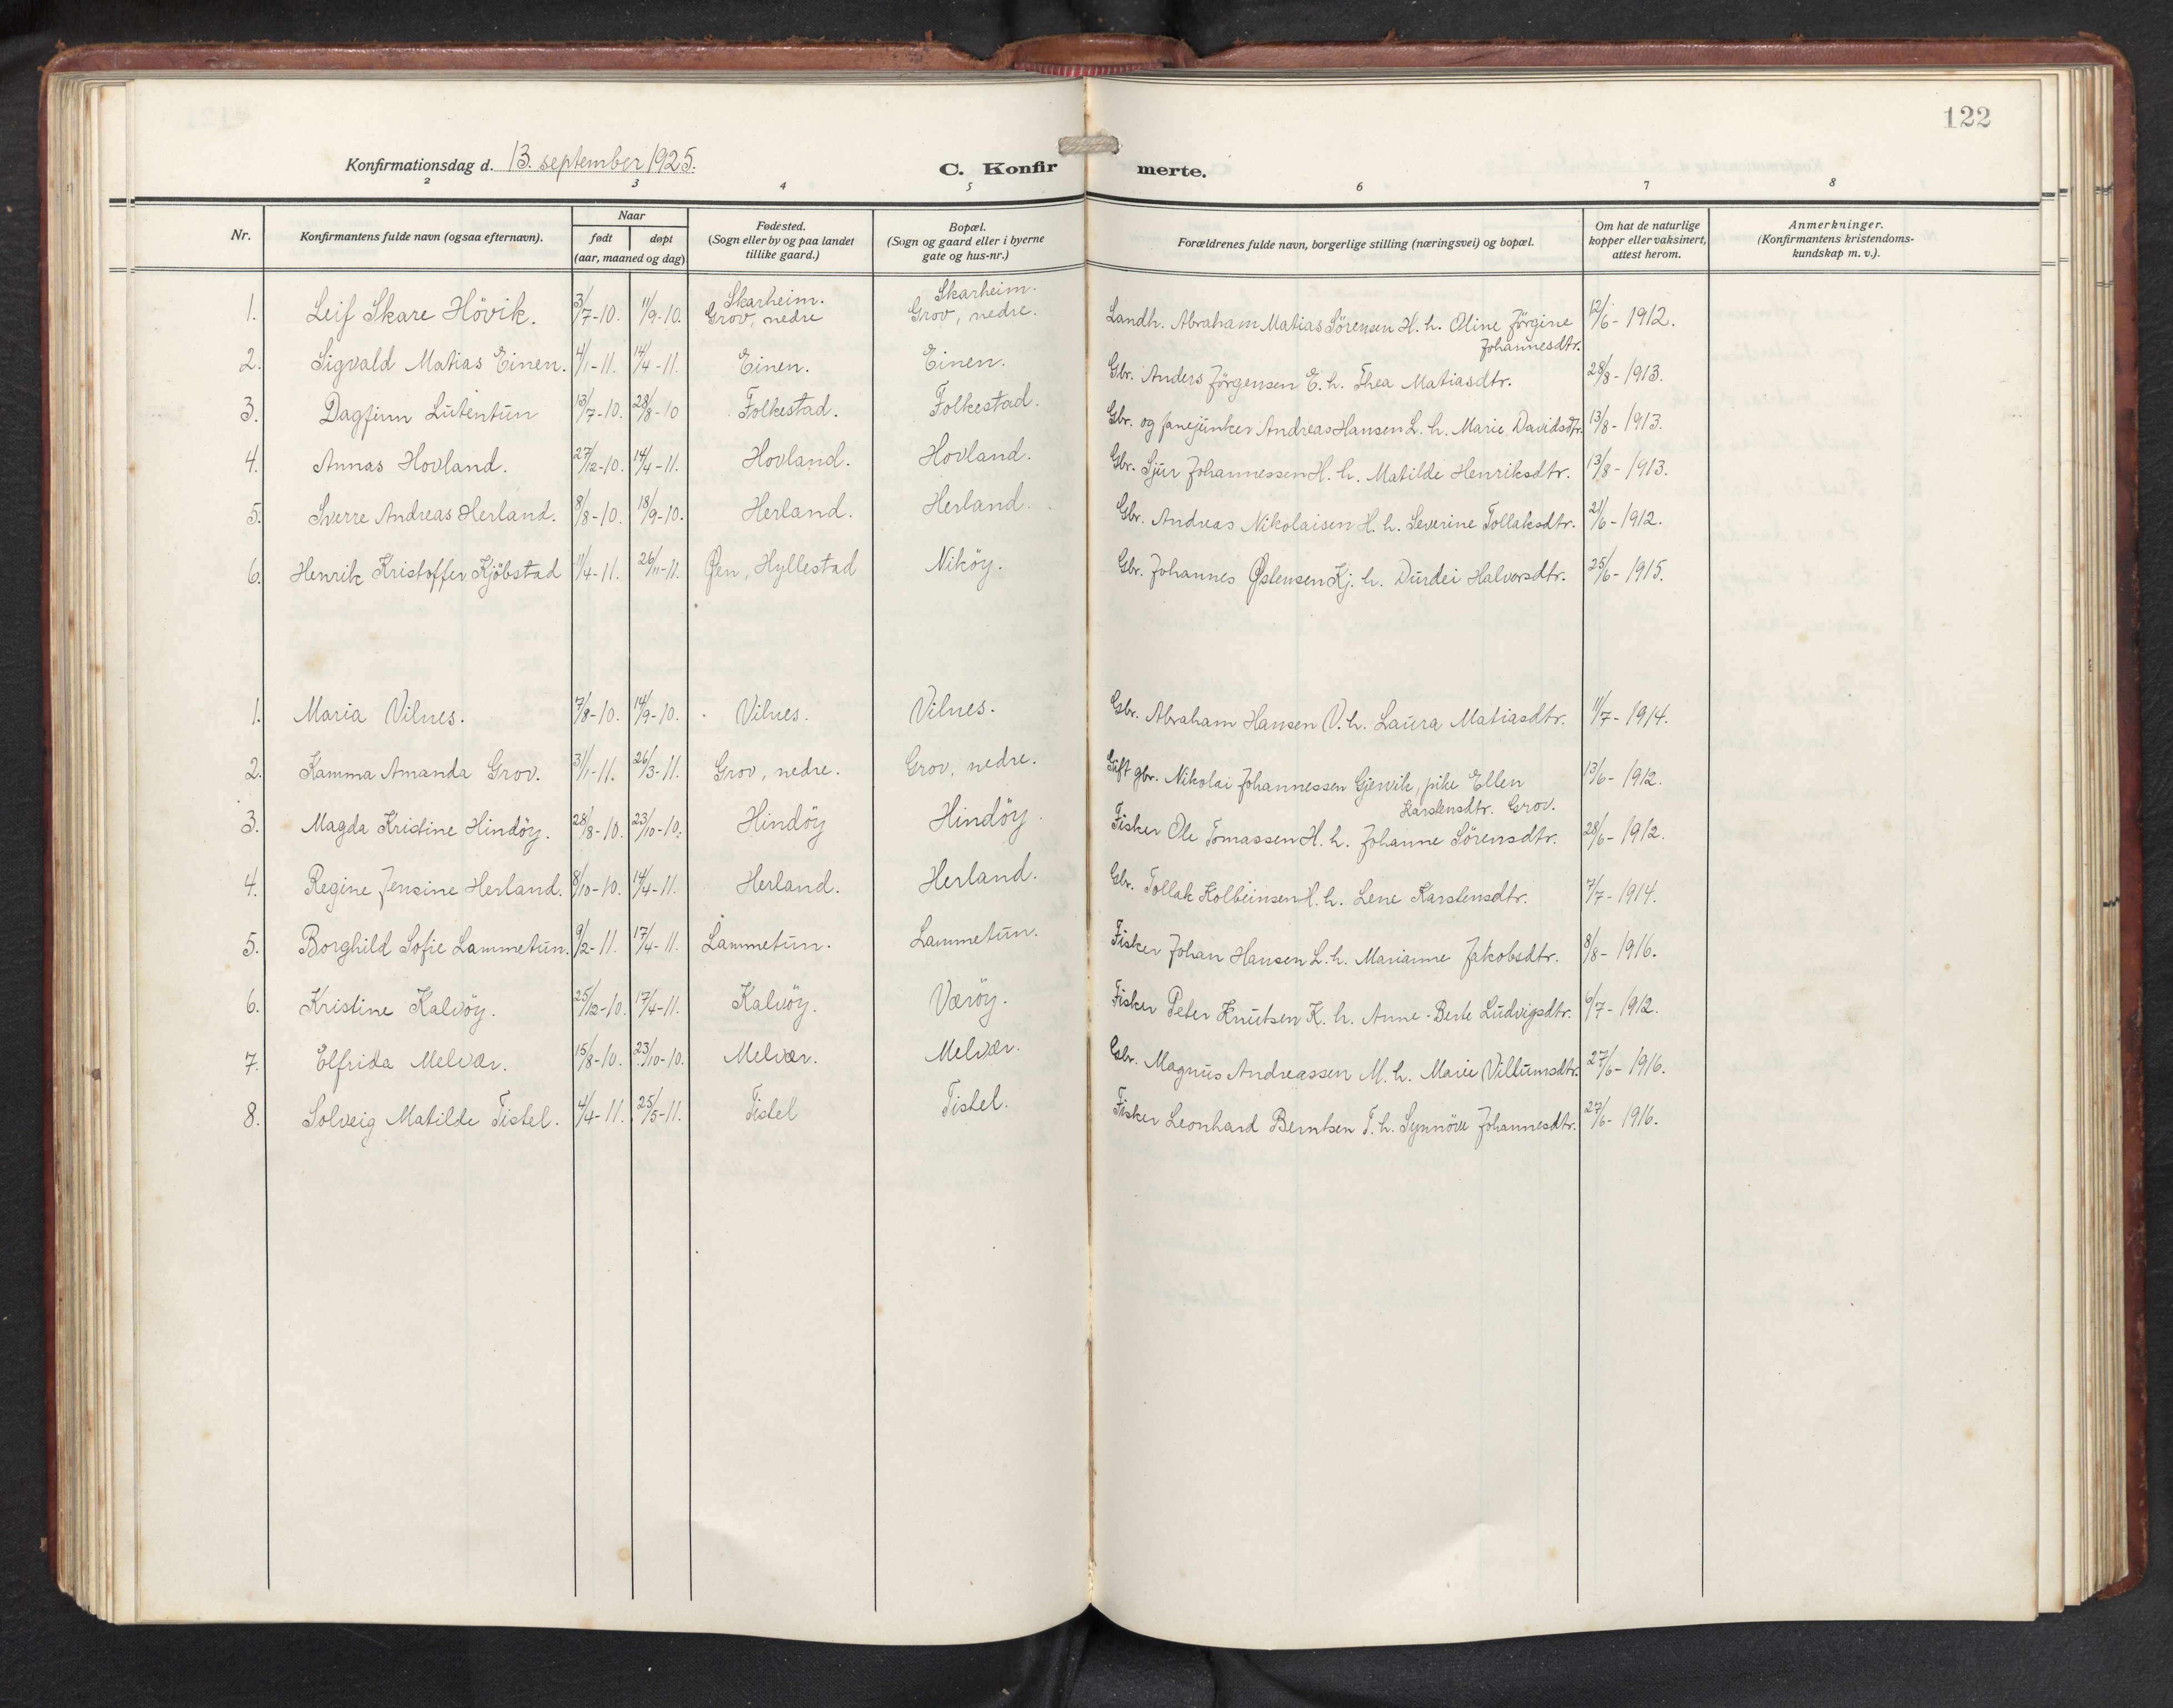 122
Konfirmationsdag d. 13. september 1925.
C. Konfirmerte.
2 3 4 5 6 7 8
Nr.
Konfirmantens fulde navn (ogsaa efternavn).
Naar
født døpt
(aar, maaned og dag)
Fødested.
(Sogn eller by og paa landet
tillike gaard.)
Bopæl.
(Sogn og gaard eller i byerne
gate og hus-nr.)
Forældrenes fulde navn, borgerlige stilling (næringsvei) og bopæl.
Om hat de naturlige
kopper eller vaksinert,
attest herom.
Anmerkninger.
(Konfirmantens kristendoms-
kundskap m. v.).
1. Leif Skare Hövik. 3/7-10. 11/9-10. Skarheim. Grov, nedre Skarheim. Grov, nedre. Landh. Abraham Matias Sörensen H. h. Oline Jörgine Johannesdtr. 12/6-1912.
2. Sigvald Matias Einen. 4/1-11. 14/4-11. Einen. Einen. Gbr. Anders Jörgensen E. h. Thea Matiasdtr. 28/8-1913.
3. Dagfinn Lutentun 13/7-10. 28/8-10 Folkestad. Folkestad. Gbr. og fanejunker Andreas Hansen L. h. Marie Davidsdtr. 13/8-1913.
4. Annas Hovland. 27/12-10. 14/4-11. Hovland. Hovland. Gbr. Sjur Johannessen H. h. Matilde Henriksdtr. 13/8-1913.
5. Sverre Andreas Herland. 8/8-10. 18/9-10. Herland. Herland. Gbr. Andreas Nikolaisen H. h. Severine Tollaksdtr. 21/6-1912.
6. Henrik Kristoffer Kjöbstad 11/4-11. 26/11-11. Øen, Hyllestad Niköy. Gbr. Johannes Østensen Kj. h. Durdei Halvorsdtr. 25/6-1915.
1. Maria Vilnes. 7/8-10. 14/9-10. Vilnes. Vilnes. Gbr. Abraham Hansen V. h. Laura Matiasdtr. 11/7-1914.
2. Kamma Amanda Grov. 31/1-11. 26/3-11. Grov, nedre. Grov, nedre. Gift gbr. Nikolai Johannessen Gjervik, pike Ellen Karstensdtr. Grov. 13/6-1912.
3. Magda Kristine Hindöy. 28/8-10. 23/10-10. Hindöy Hindöy. Fisker Ole Tomassen H. h. Johanne Sörensdtr. 28/6-1912.
4. Regine Jensine Herland. 8/10-10. 14/4-11. Herland. Herland. Gbr. Tollak Kolbeinsen H. h. Lene Karstensdtr. 7/7-1914.
5. Borghild Sofie Lammetun. 9/2-11. 17/4-11. Lammetun. Lammetun. Fisker Johan Hansen L. h. Marianne Jakobsdtr. 8/8-1916.
6. Kristine Kalvöy. 25/12-10. 17/4-11. Kalvöy. Værøy. Fisker Peter Knutsen K. h. Anne-Berte Ludvigsdtr. 6/7-1912.
7. Elfrida Melvær. 15/8-10. 23/10-10. Melvær. Melvær. Gbr. Magnus Andreassen M. h. Marie Villumsdtr. 27/6-1916.
8. Solveig Matilde Tistel. 4/4-11. 25/5-11. Tistel Tistel. Fisker Leonhard Berntsen T. h. Synnöve Johannesdtr. 27/6-1916.